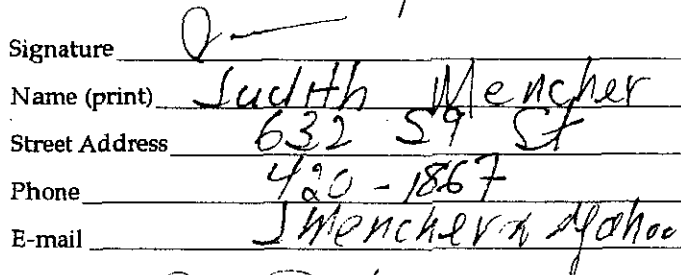 Signature
Name (print) Judith Mencher
Street Address 632 59 St
Phone 420-1867
E-mail Jmencher Yahoo